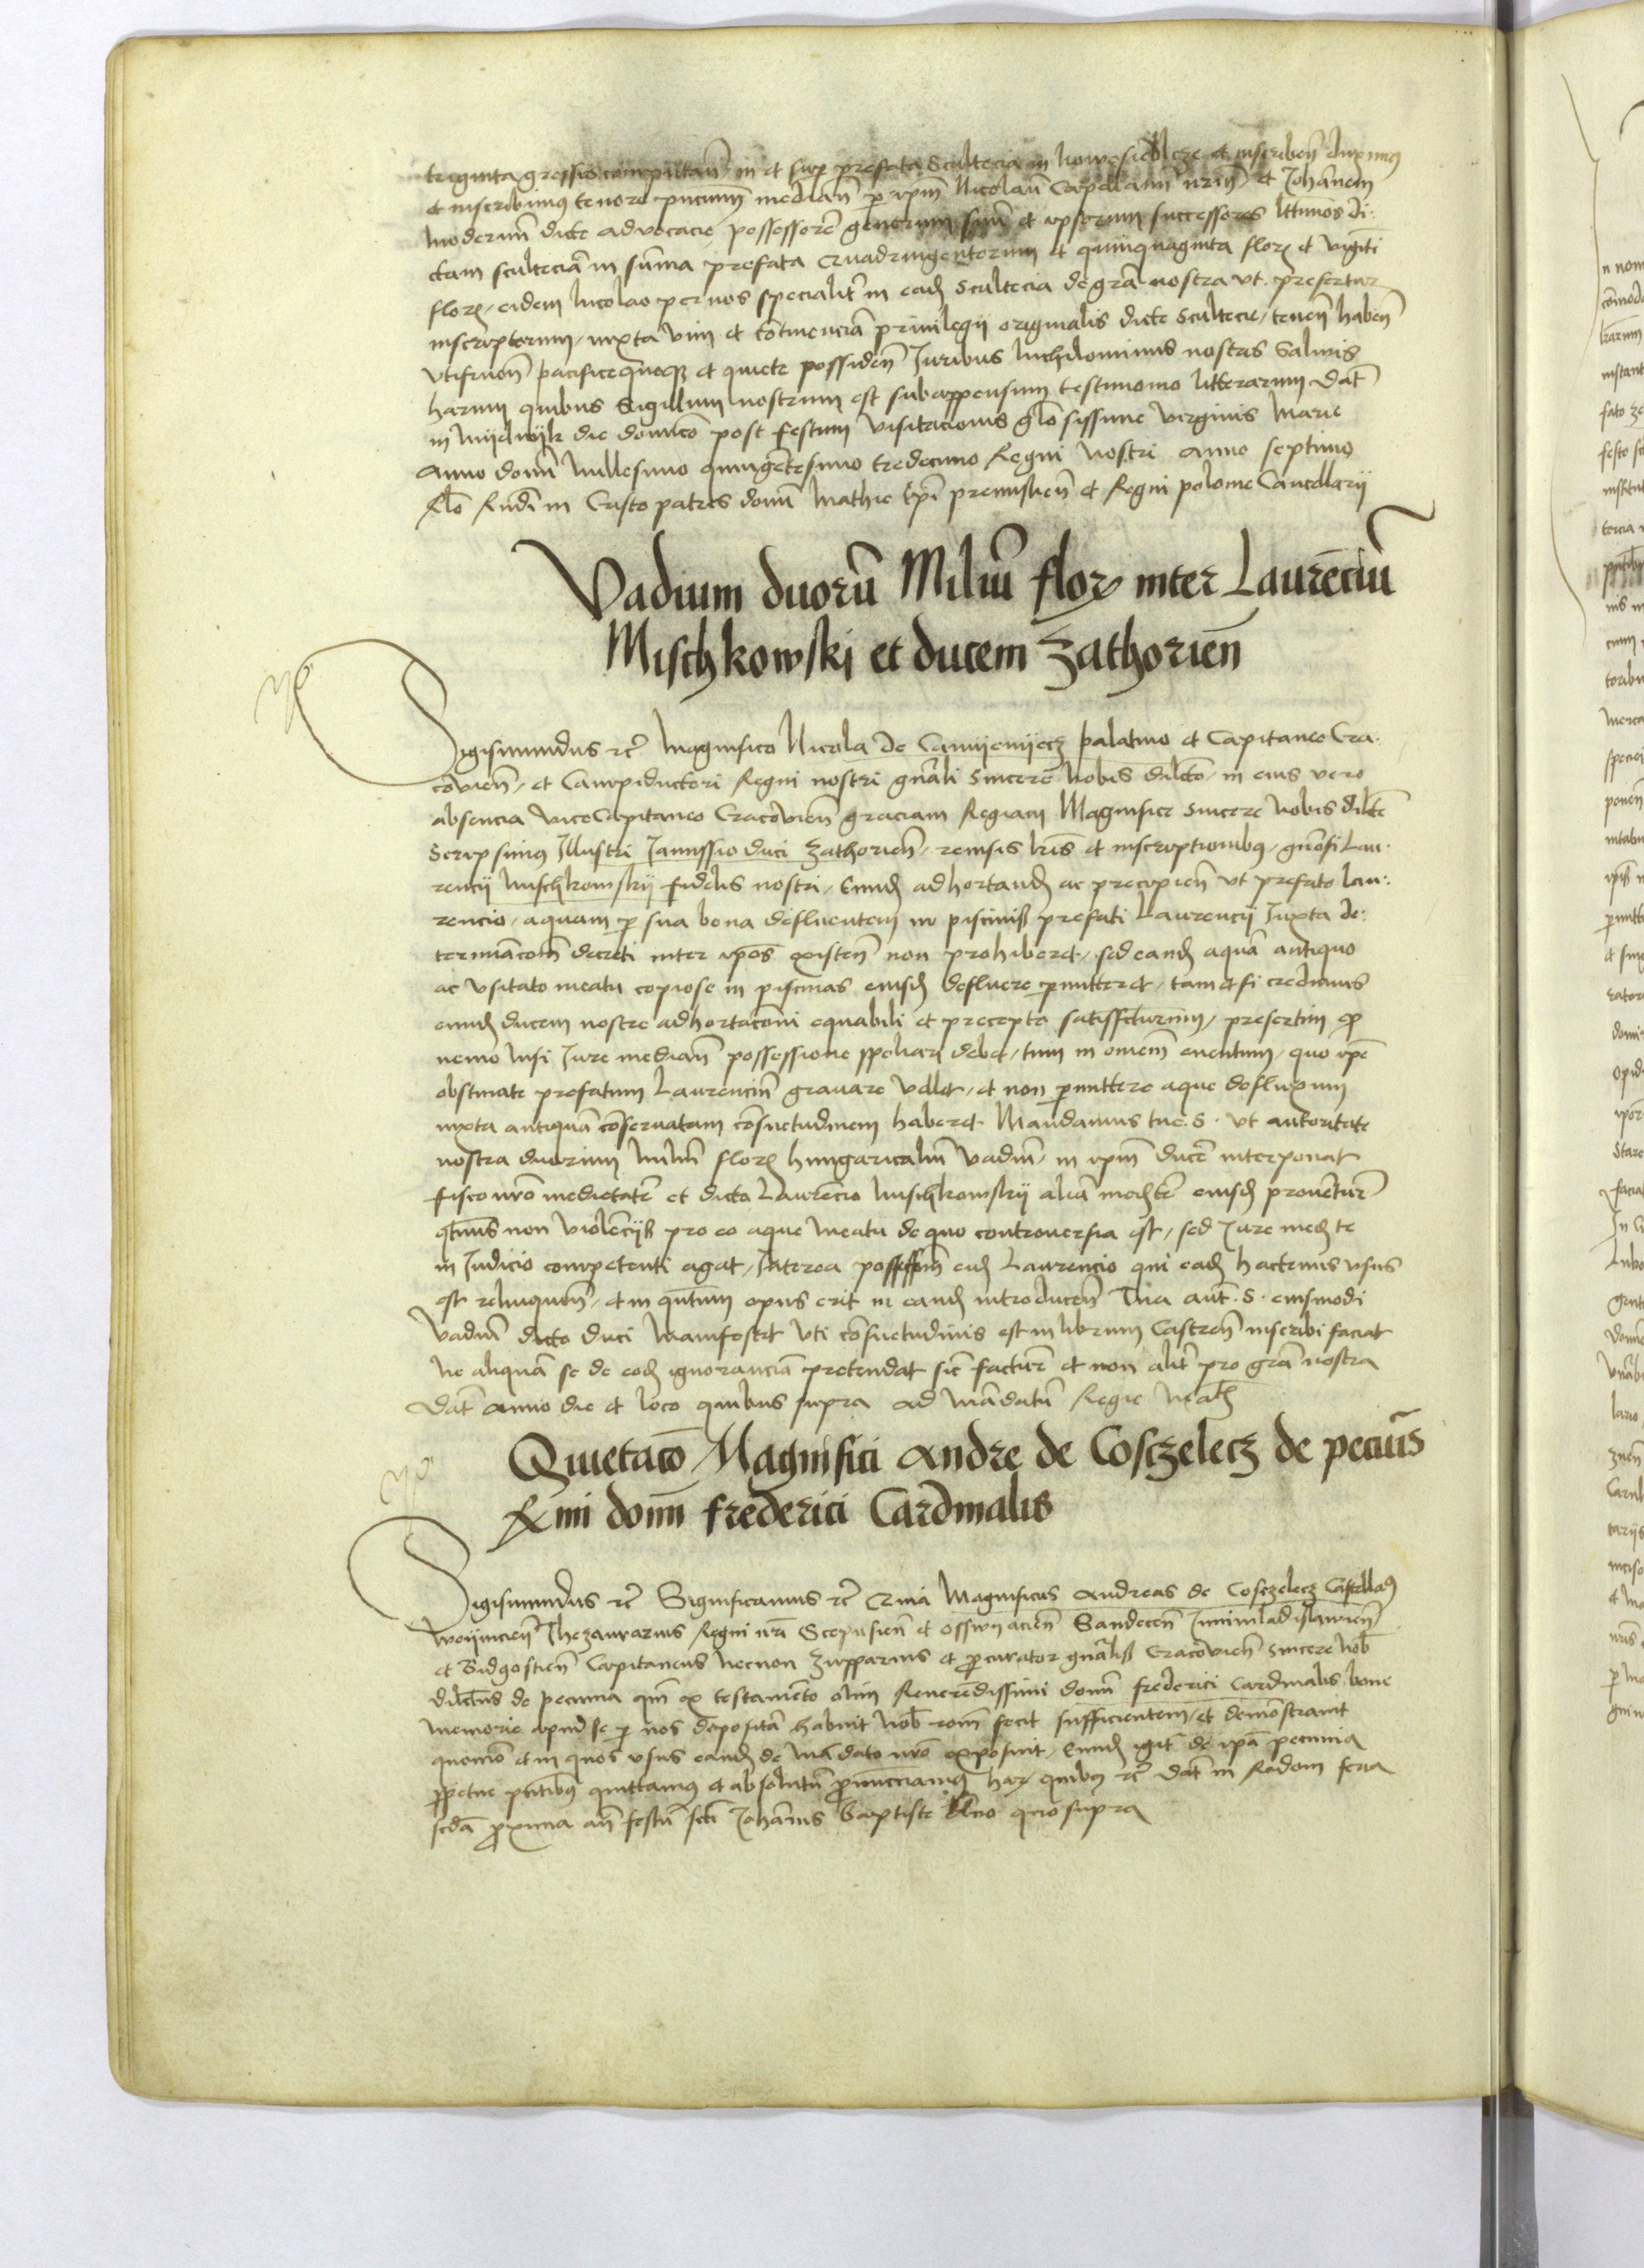 triginta grossis computan in et sup prefata Scultecia in et inscriben duximus
et inscribimus tenore pncium median p ipm Nicolau Capellanu nrm et Johanem
modernu dicte advocacie possessore generum suu et ipsorum successores lttimos di:
ctam scultecia in suma prefata Quadringentorum et quinquaginta flor et viginti
flor, eidem Nicolao per nos specialit in eade Scultecia de gra nostra vt prefertur
inscriptorum, iuxta vim et continencia privilegii originalis dicte Scultecie, tenen haben
vtifruen pacifice quoq et quiete possiden Juribus nostris Salvis
harum quibus Sigillum nostrum est subappensum testimonio litterarum Dat
in die domico post festum visitacionis glosissime virginis Marie
Anno domi Millesimo quingetesimo tredecimo Regni Nostri anno septimo
Rlo Rndi in Cristo patris domi Mathie Epi premislien et Regni polonie Cancellarii
Vadium duoru Miliu flor inter Laureciu
Mischkowski et ducem Zathorien
Sigismundus etc Magnifico Nicola de Camyenyecz palatino et Capitaneo Cra:
covien, et Campiductori Regni nostri gnali Sincere Nobis dilcto, in eius vero
absencia vice Capitaneo Cracovien graciam Regiam Magnifice Sincere Nobis dilcte
Scripsimus Illustri Janussio duci Zathorien, remsis lris et inscriptionibus, gnosi Lau:
rencii Mischkowskij fidelis nostri, Eunde adhortande ac precipien vt prefato Lau:
rencio, aquam p sua bona defluentem in piscinis prefati Laurencii Juxta de:
terminacom decreti inter ipos existen non prohiberet, sed eande aqua antiquo
ac vsitato meatu copiose in piscinas eiusde defluere pmitteret, tametsi credimus
eunde ducem nostre adhortacioni equabili et precepto satisfcturum, presertim q
nemo nisi Jure median possessione spoliari debet, tum in omem eventum, quo ipe
obstinate prefatum Laurenciu gravare vellet, et non pmittere aque defluxum
iuxta antiqua coservatam cosuetudinem haberet Mandamus tue S. vt autoritate
nostra duorum Miliu flor hungaricaliu Vadiu, in ipm duce interponat
fisco nro medietate et dicto Laurecio Mischkowskij alia medte eiusde provetur
qtinus non violecijs pro eo aque meatu de quo controversia est, sed Jure medte
in Judicio competenti agat, Interea possessiom eide Laurencio qui eade hactenus vsus
est relinquen, et in qntum opus erit in eande introducen Tua aut S. eiusmodi
Vadiu dicto duci Manifestet vti cosuetudinis est in librum Castren inscribi faciat
Ne aliqua se de eode ignorancia pretendat sic factur et non alit pro gra nostra
Dat Anno die et loco quibus supra Ad madatu Regie
Quietaco Magnifici Andre de Cosczelecz de pecuis
Rmi domi frederici Cardinalis
Sigismundus etc Significamus etc Quia Magnificus Andreas de Cosczelecz Castellans
Thezaurarius Regni nri Scepusien et osswyacien Sandecen Junivladislavien
et Bidgostien Capitaneus Necnon Zupparius et pcurator gnalis Cracovien Sincere nob
dilctus de pecunia qm ex testameto olim Reveredissimi domi frederici Cardinalis bone
memorie apud se p nos deposita habuit Nob rom fecit sufficientem, et demostravit
quomo et in quos vsus eande de madato nro exposuit, Eunde igit de ipa pecunia
ppetue quittamus et absolutu pnunciamus har quibus etc Dat in Radom feria
scda pxima an festu scti Johanis Baptiste Anno quo supra